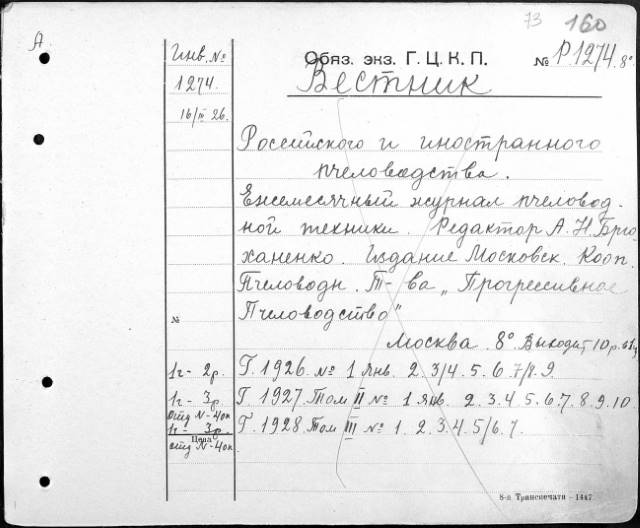 73 160
А
Инв. №
1274.
16/III 26.
Обяз. экз. Г. Ц. К. П. № Р.1274. 8°.
Вестник
Российского и иностранного
пчеловодства.
Ежемесячный журнал пчеловод-
ной техники. Редактор А. Н. Брю-
ханенко. Издание Московск. Кооп.
Пчеловодн. Т-ва „Прогрессивное
№ Пчеловодство"
Москва. 8° Выходит 10 р. в
1г - 2р. Г. 1926. № 1 Янв. 2. 3/4. 5. 6. 7/8. 9.
1г - 3р. Г. 1927. Том II № 1 Янв. 2. 3. 4. 5. 6. 7. 8. 9. 10
отд N - 40к
1г - 3р. Г. 1928. Том III № 1. 2. 3. 4. 5/6. 7.
Цена
отд N - 40к.
8-я Транспечати - 1447